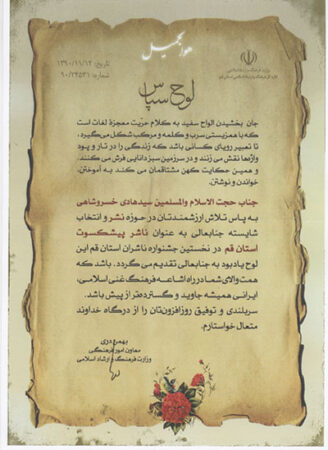 هوالجمیل
وزارت فرهنگ و ارشاد اسلامی
اداره کل فرهنگ و ارشاد اسلامی استان قم
تاریخ: ۱۳۹۰/۱۱/۱۲
شماره: ۹۰/۲۴۵۳۱
لوح سپاس
جان بخشیدن الواح سفید به کلام حریّت معجزهٔ لغات است
که با همزیستی سرب و کلمه و مرکب شکل می‌گیرد،
تا تعبیر رویای کسانی باشد که زندگی را در تار و پود
واژه‌ها نقش می‌زنند و در سرزمین سبز دانایی فرش می‌کنند.
و همین حکایت کهن مشتاقمان می کند به آموختن،
خواندن و نوشتن.
جناب حجت الاسلام والمسلمین سیدهادی خسروشاهی
به پاس تلاش ارزشمندتان در حوزه نشر و انتخاب
شایسته جنابعالی به عنوان ناشر پیشکسوت
استان قم در نخستین جشنواره ناشران استان قم این
لوح یادبود به جنابعالی تقدیم می گردد. باشد که
همت والای شما در راه اشاعه فرهنگ غنی اسلامی،
ایرانی همیشه جاوید و گسترده‌تر از پیش باشد.
سربلندی و توفیق روزافزون‌تان را از درگاه خداوند
متعال خواستارم.
بهمن دری
معاون امور فرهنگی
وزارت فرهنگ و ارشاد اسلامی